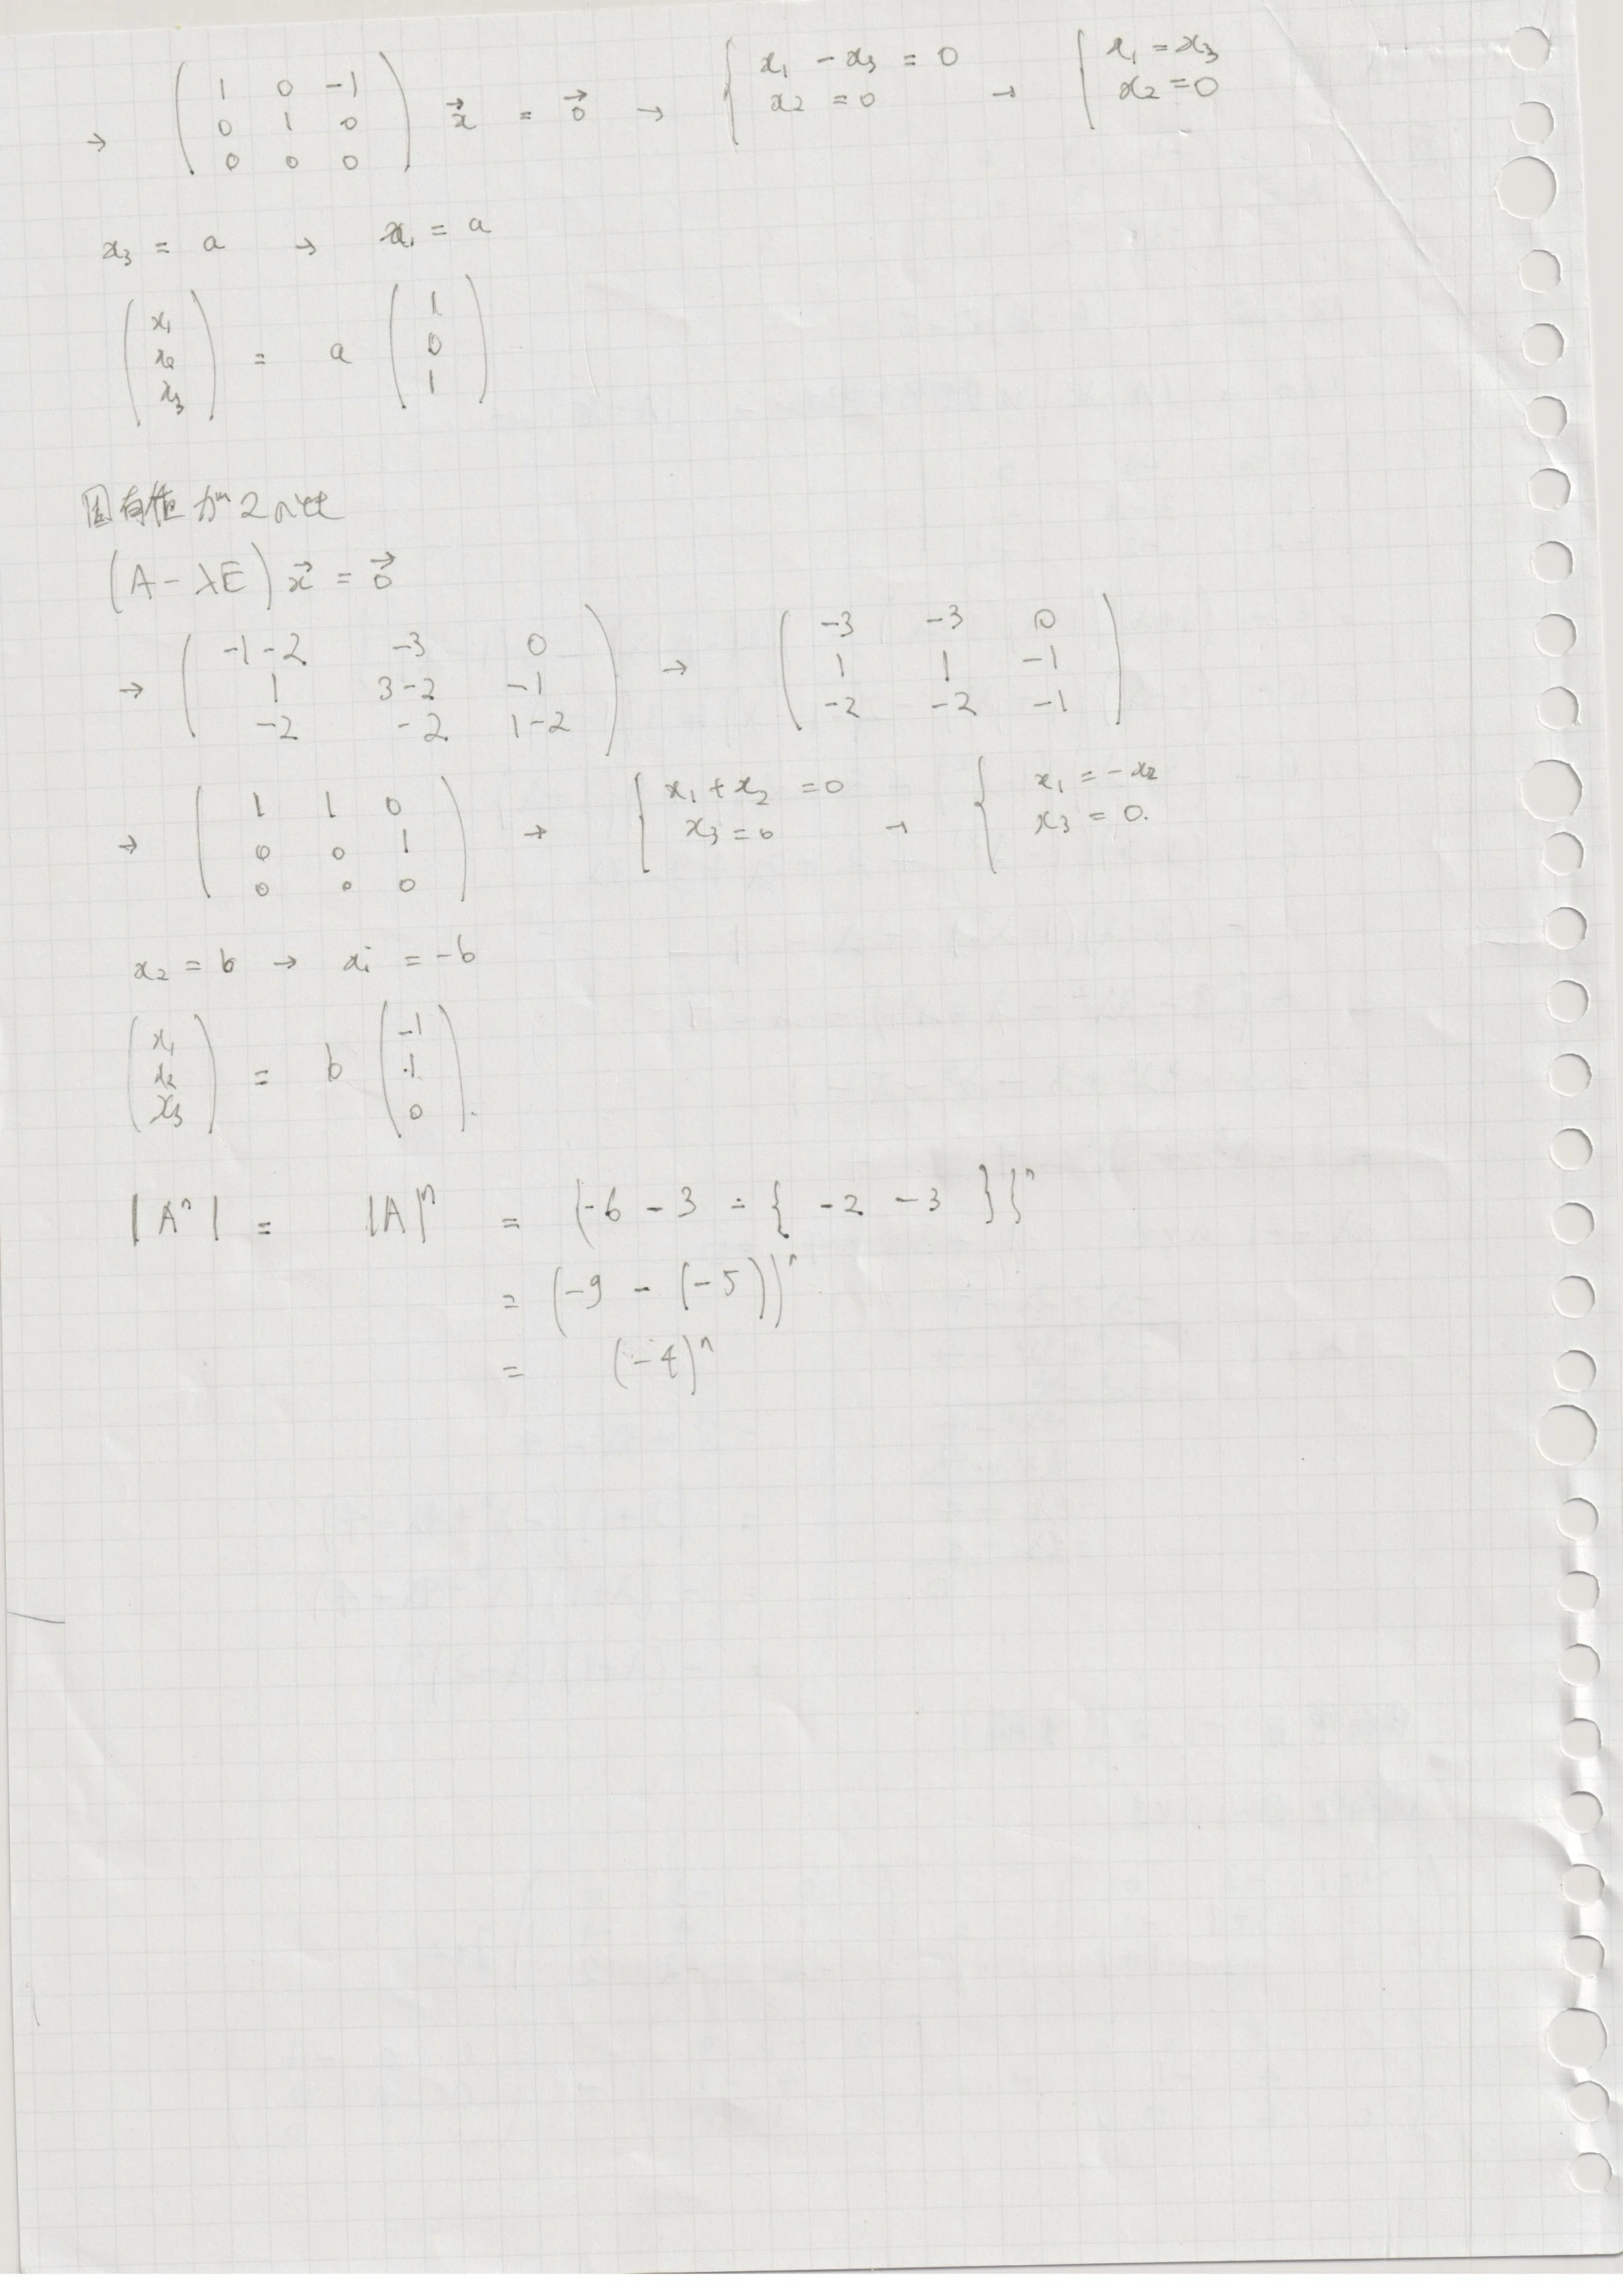 → ( 1 0 -1 / 0 1 0 / 0 0 0 ) x⃗ = 0⃗ → { x₁ - x₃ = 0 / x₂ = 0 → { x₁ = x₃ / x₂ = 0
x₃ = a → x₁ = a
( x₁ / x₂ / x₃ ) = a ( 1 / 0 / 1 )
固有値が2のとき
(A - λE) x⃗ = 0⃗
→ ( -1-2 -3 0 / 1 3-2 -1 / -2 -2 1-2 ) → ( -3 -3 0 / 1 1 -1 / -2 -2 -1 )
→ ( 1 1 0 / 0 0 1 / 0 0 0 ) → { x₁ + x₂ = 0 / x₃ = 0 → { x₁ = -x₂ / x₃ = 0.
x₂ = b → x₁ = -b
( x₁ / x₂ / x₃ ) = b ( -1 / 1 / 0 ).
|Aⁿ| = |A|ⁿ = (-6 - 3 - { -2 -3 })ⁿ
= (-9 - (-5))ⁿ
= (-4)ⁿ